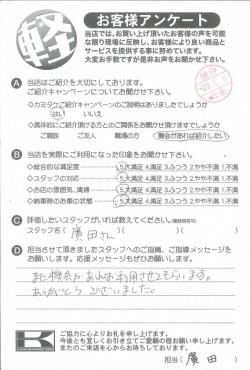 軽
お客様アンケート
当店では、お買い上げ頂いたお客様の声を可能
な限り現場に反映し、お客様により良い商品と
サービスを提供する事に努めています。
大変お手数ですが是非お声をお聞かせ下さい。
A 当店はご紹介を大切にしております。
ご紹介キャンペーンについてお聞かせ下さい。
◇カミタケご紹介キャンペーンのご説明はありましたでしょうか
はい いいえ
◇具体的にご紹介頂ける方とのご関係をお聞かせ頂けますでしょうか
ご親族 ご友人 職場の方 機会があれば紹介したい
B 当店を実際にご利用になった印象をお聞かせ下さい。
◇総合的な満足度 5.大満足 4.満足 3.ふつう 2.やや不満 1.不満
◇スタッフの対応 5.大満足 4.満足 3.ふつう 2.やや不満 1.不満
◇お店の雰囲気、清掃 5.大満足 4.満足 3.ふつう 2.やや不満 1.不満
◇納車時のお車の状態 5.大満足 4.満足 3.ふつう 2.やや不満 1.不満
C 評価したいスタッフがいれば教えてください。(複数回答可)
スタッフ名( 廣田さん )
D 担当させて頂きましたスタッフへのご指摘、ご指導メッセージを
お願いします。応援メッセージもぜひお願いします。
また機会があれば利用させてもらいます。
ありがとうございました。
K
ご協力に心よりお礼を申し上げます。
今後とも宜しくお引き立てご愛顧の程お願い申し上げます。
またのご来店を心からお待ちしております。
担当( 廣田 )